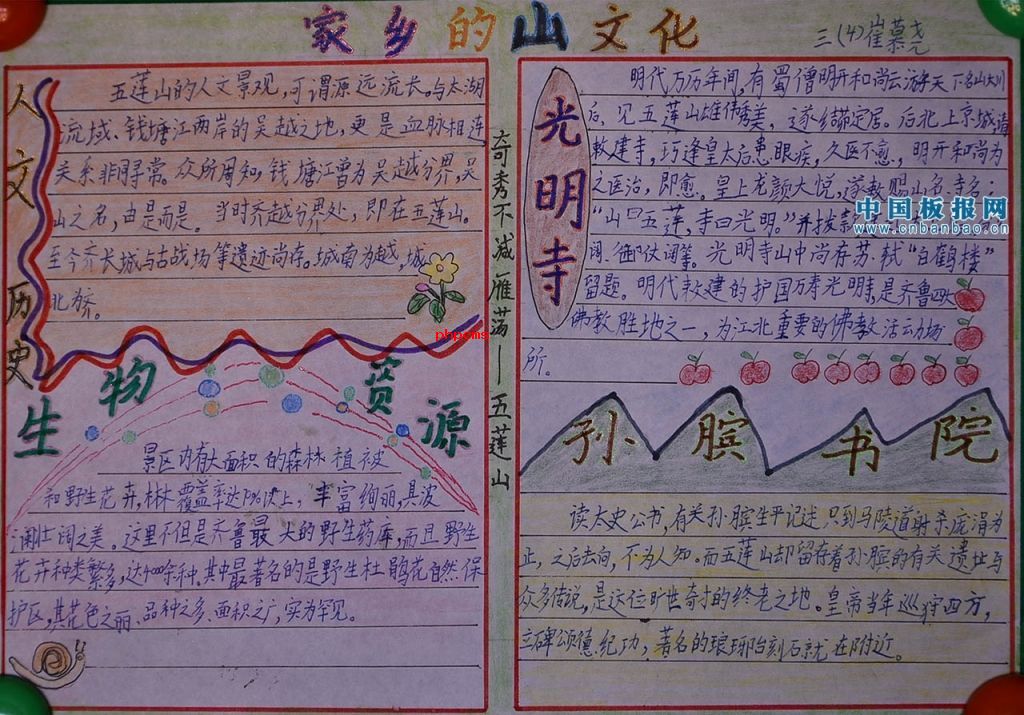 家乡的山文化
三(4)崔慕尧
人文历史
五莲山的人文景观,可谓源远流长。与太湖
流域、钱塘江两岸的吴越之地,更是血脉相连
关系非同寻常。众所周知,钱塘江曾为吴越分界,吴
山之名,由是而是。当时齐越分界处,即在五莲山。
至今齐长城与古战场等遗迹尚存。城南为越,城
北为齐。
phpcms
生物资源
景区内有大面积的森林植被
和野生花卉,林覆盖率达 以上,丰富绚丽,具波
澜壮阔之美。这里不但是齐鲁最大的野生药库,而且野生
花卉种类繁多,达4000余种,其中最著名的是野生杜鹃花自然保
护区,其花色之丽、品种之多、面积之广,实为罕见。
奇秀不减雁荡——五莲山
光明寺
明代万历年间,有蜀僧明开和尚云游天下名山大川
后,见五莲山雄伟秀美,遂结茆定居。后北上京城请
敕建寺,巧逢皇太后患眼疾,久医不愈,明开和尚为
之医治,即愈。皇上龙颜大悦,遂敕赐山名、寺名:
“山曰五莲,寺曰光明。”并拨款
阁、御仗阁等。光明寺山中尚存苏轼“白鹤楼”
留题。明代敕建的护国万寿光明寺,是齐鲁四大
佛教胜地之一,为江北重要的佛教活动场
所。
中国板报网
www.cnbanbao.cn
孙膑书院
读太史公书,有关孙膑生平记述,只到马陵道射杀庞涓为
止,之后去向,不为人知。而五莲山却留存着孙膑的有关遗址与
众多传说,是这位旷世奇才的终老之地。皇帝当年巡狩四方,
立碑颂德纪功,著名的琅琊台刻石就在附近。